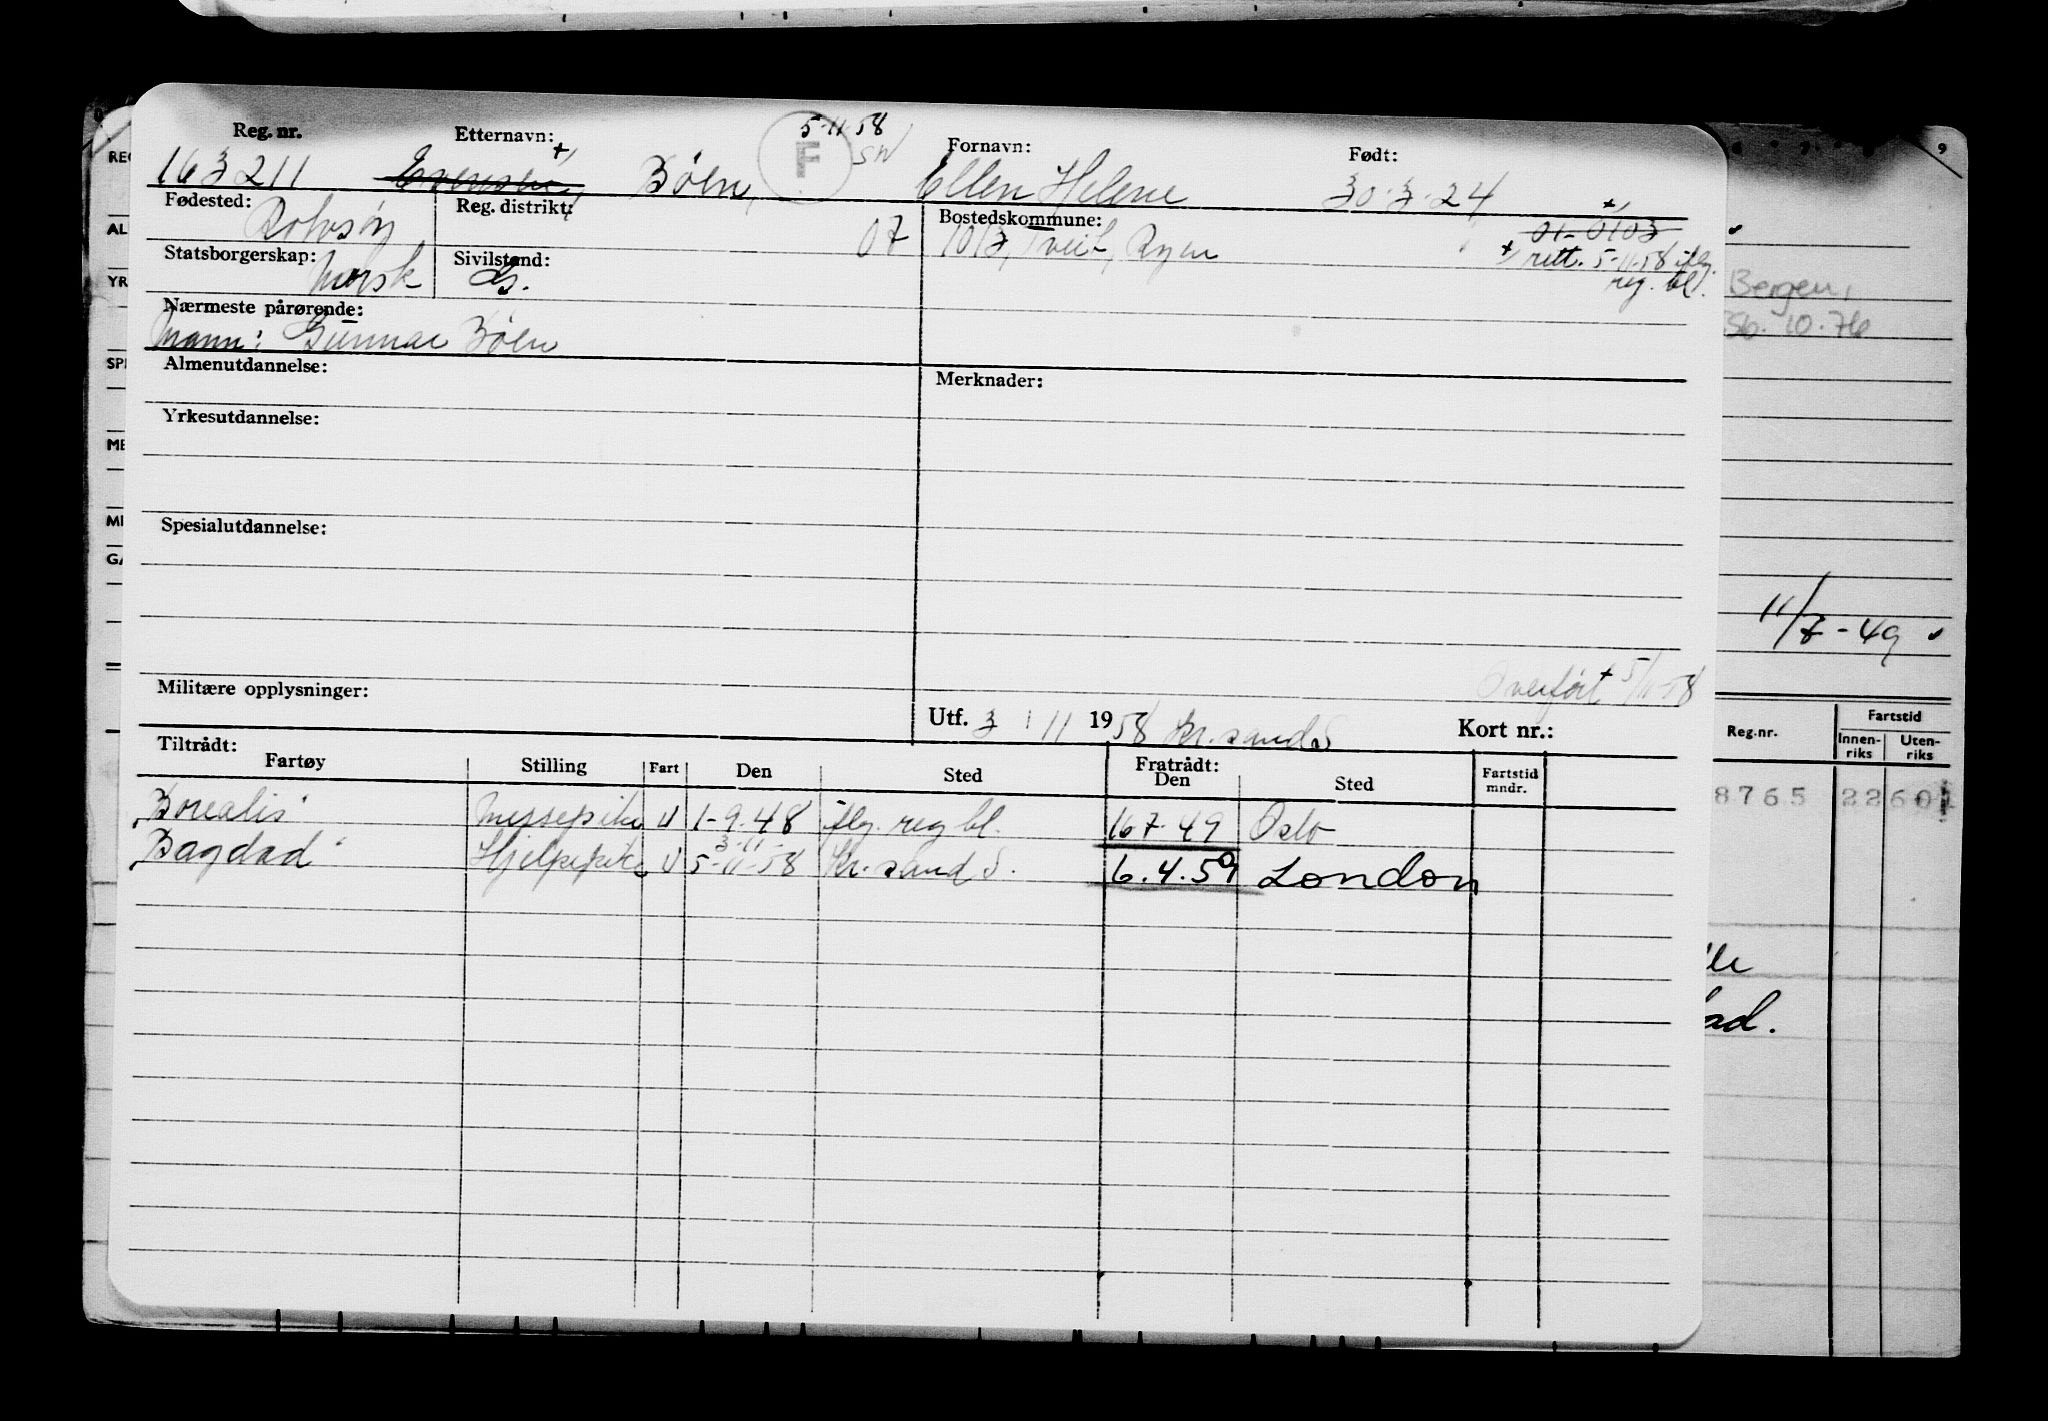 Reg. nr. Etternavn: 5-11-58 Fornavn: Født:
163211 Bölen, F SN Ellen Helene 30-3-24
Fødested: Reg. distrikt: 07 Bostedskommune: 01-0103
Rolvsöy 1013, Tveit, Ryen + rett. 5-11-58 iflg.
reg. bl.
Statsborgerskap: Sivilstand:
Norsk G.
Nærmeste pårørende:
Mann: Gunnar Bölen
Almenutdannelse: Merknader:
Yrkesutdannelse:
Spesialutdannelse:
Overført 5/11-58
Militære opplysninger: Utf. 3 / 11 1958 Kr.sand S Kort nr.:
Tiltrådt: Fratrådt:
Fartøy Stilling Fart Den Sted Den Sted Fartstid mndr.
Borealis Messepike U 1-9-48 iflg. reg bl. 16 7-49 Oslo
3-11-
Bagdad Hjelpepike U 5-11-58 Kr.sand S. 6.4.59 London
REG
AL
YR
SPE
ME
MI
GA
9
Bergen,
10.76
11/7-49
Reg.nr. Fartstid
Innen-riks Uten-riks
8765 22 601
lle
ad.